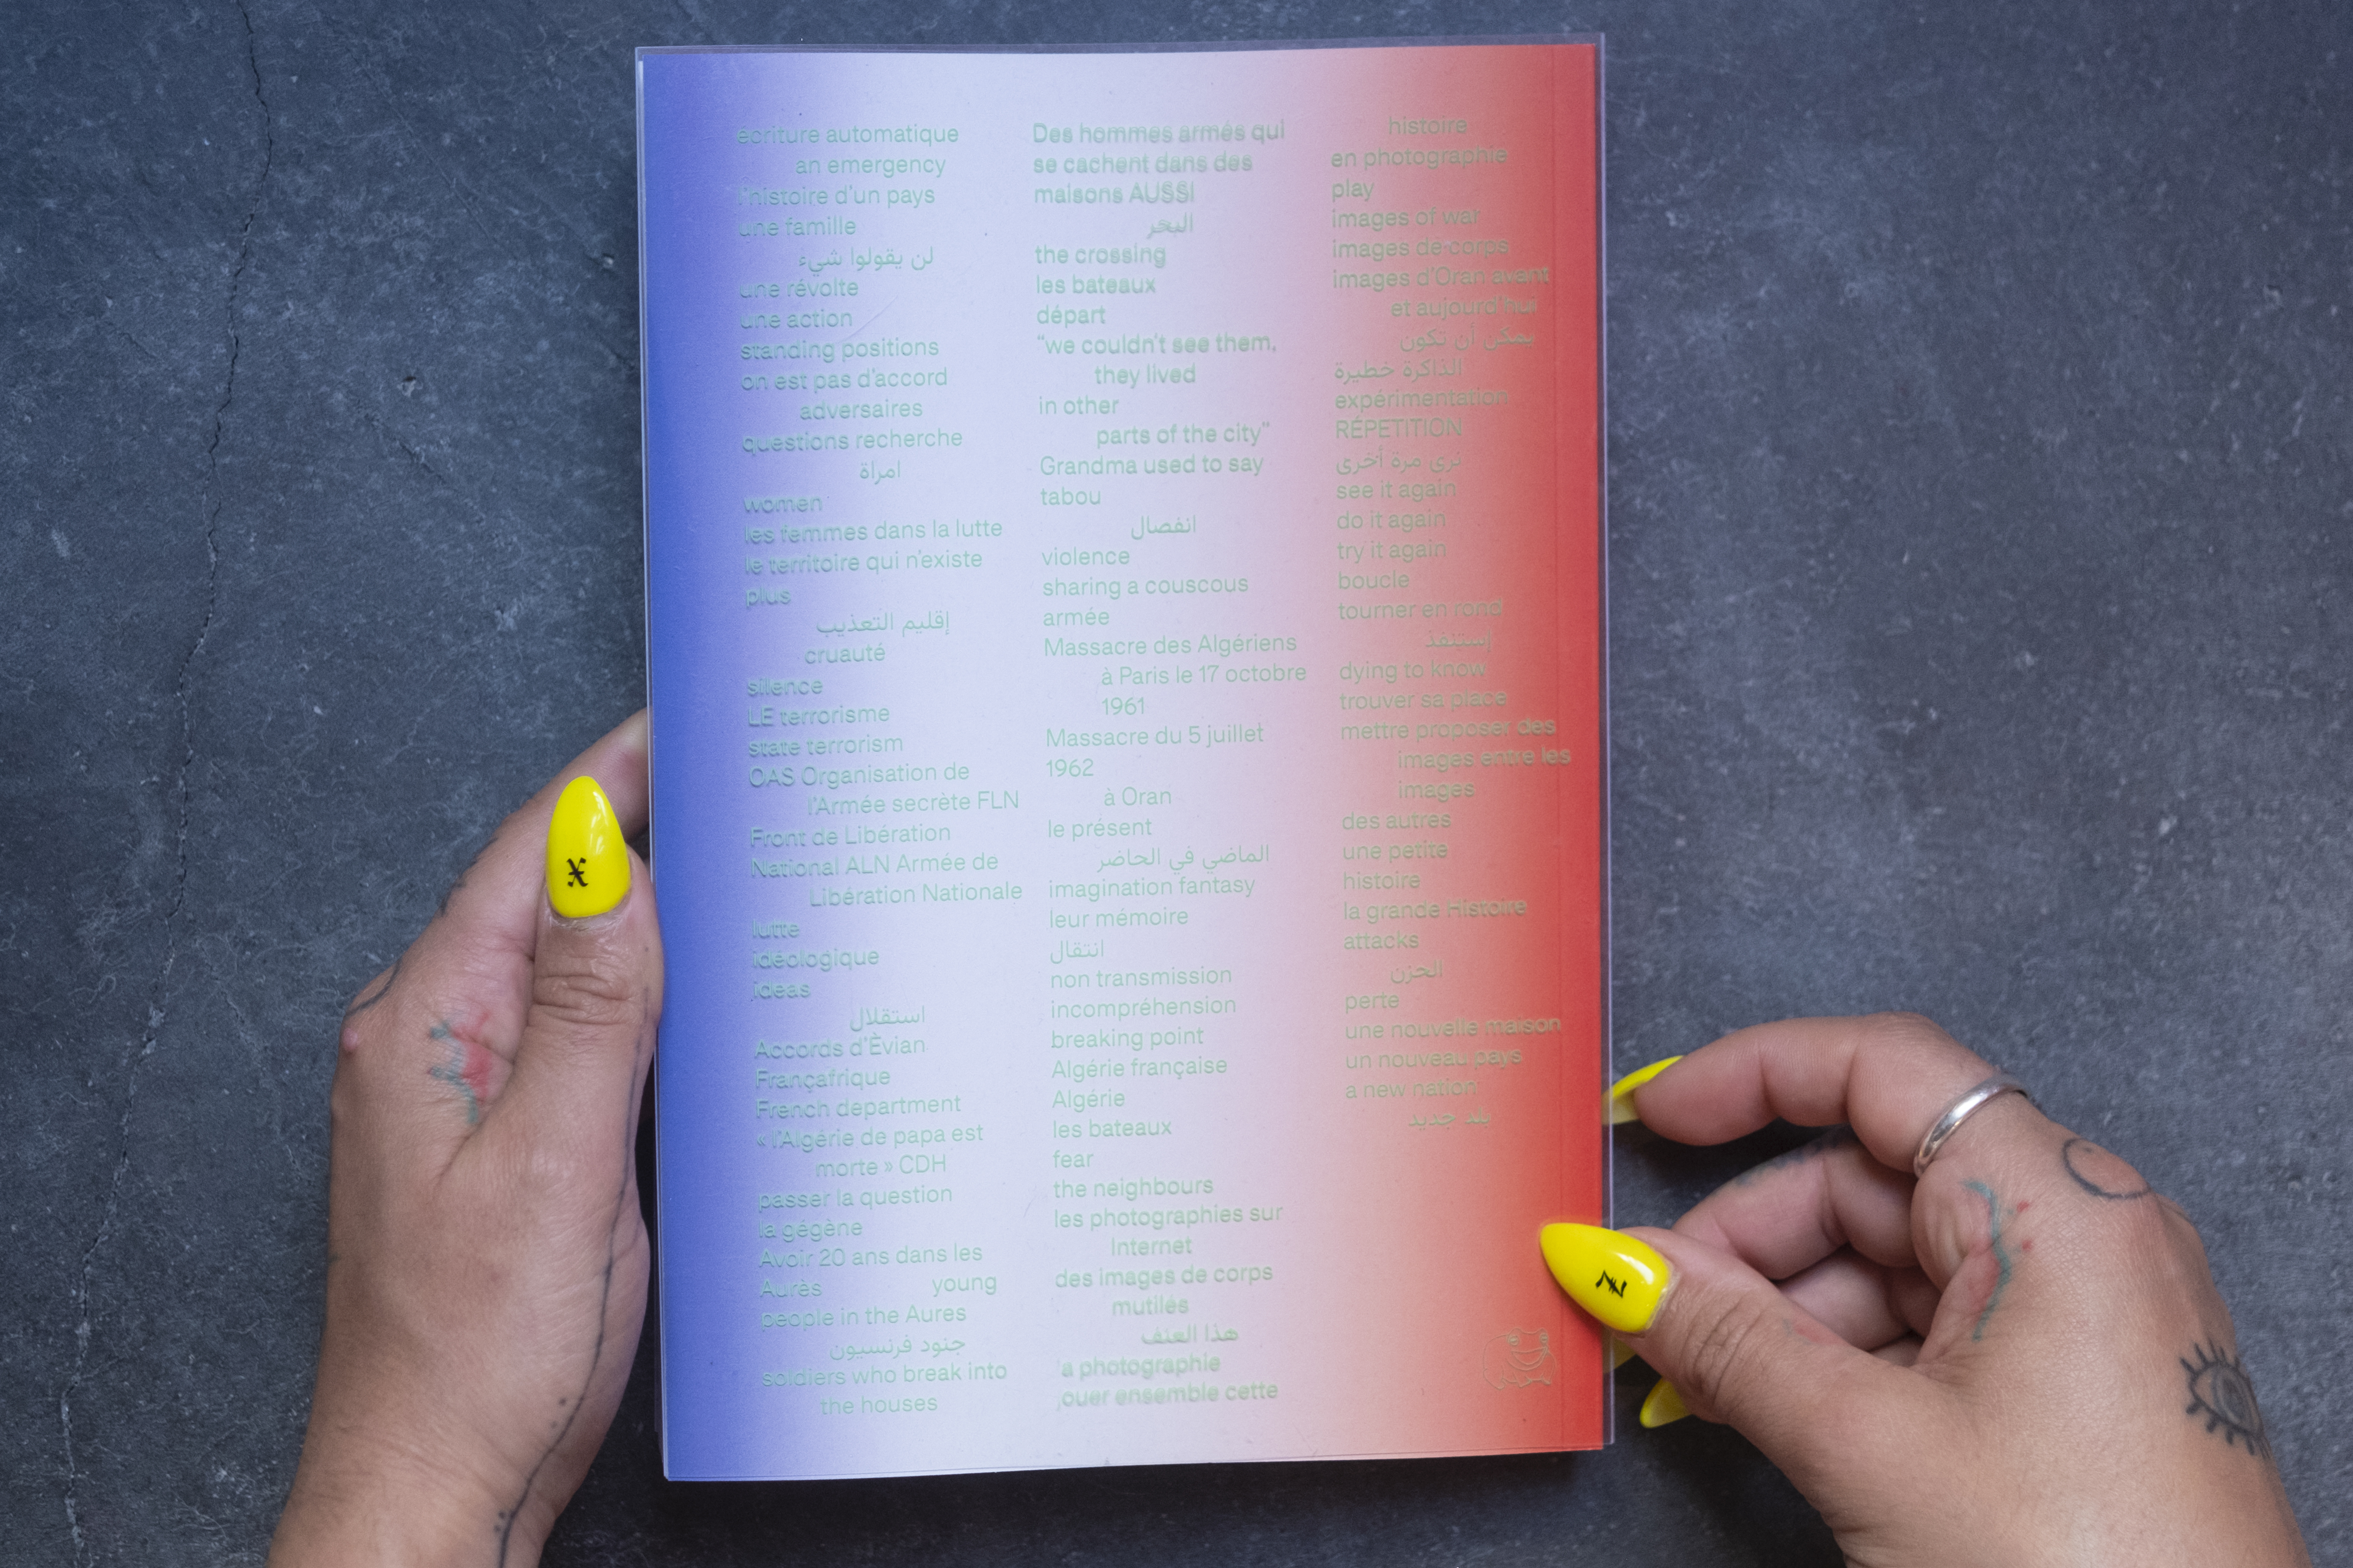 écriture automatique
an emergency
l'histoire d'un pays
une famille
لن يقولوا شيء
une révolte
une action
standing positions
on est pas d'accord
adversaires
questions recherche
امرأة
women
les femmes dans la lutte
le territoire qui n'existe
plus
إقليم التعذيب
cruauté
silence
LE terrorisme
state terrorism
OAS Organisation de
l'Armée secrète FLN
Front de Libération
National ALN Armée de
Libération Nationale
lutte
idéologique
ideas
استقلال
Accords d'Èvian
Françafrique
French department
« l'Algérie de papa est
morte » CDH
passer la question
la gégène
Avoir 20 ans dans les
Aurès young
people in the Aures
جنود فرنسيون
soldiers who break into
the houses
Des hommes armés qui
se cachent dans des
maisons AUSSI
البحر
the crossing
les bateaux
départ
"we couldn't see them,
they lived
in other
parts of the city"
Grandma used to say
tabou
انفصال
violence
sharing a couscous
armée
Massacre des Algériens
à Paris le 17 octobre
1961
Massacre du 5 juillet
1962
à Oran
le présent
الماضي في الحاضر
imagination fantasy
leur mémoire
انتقال
non transmission
incompréhension
breaking point
Algérie française
Algérie
les bateaux
fear
the neighbours
les photographies sur
Internet
des images de corps
mutilés
هذا العنف
la photographie
jouer ensemble cette
histoire
en photographie
play
images of war
images de corps
images d'Oran avant
et aujourd'hui
يمكن أن تكون
الذاكرة خطيرة
expérimentation
RÉPETITION
نرى مرة أخرى
see it again
do it again
try it again
boucle
tourner en rond
إستنفذ
dying to know
trouver sa place
mettre proposer des
images entre les
images
des autres
une petite
histoire
la grande Histoire
attacks
الحزن
perte
une nouvelle maison
un nouveau pays
a new nation
بلد جديد